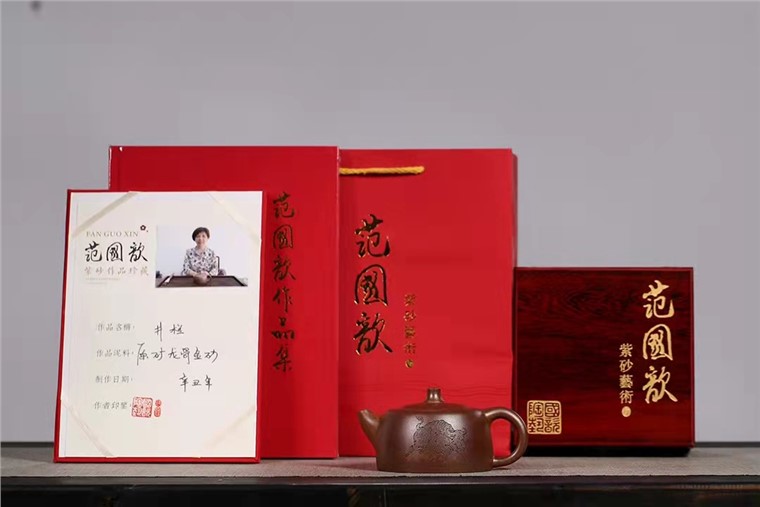 FAN GUO XIN
范國歆
紫砂作品珍藏
作品名稱： 井栏
作品泥料：
制作日期： 辛丑年
作者印鑒：
范國歆作品集
范國歆
紫砂藝術
范國歆
紫砂藝術
國歆
陶藝